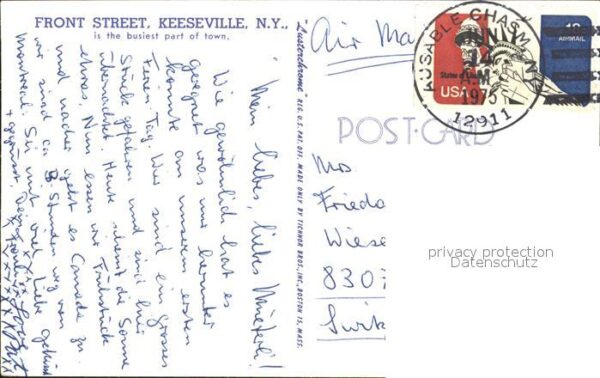 FRONT STREET, KEESEVILLE, N.Y.,
is the busiest part of town.
Mein liebes, liebes Mueterli!
Wie gewöhnlich hat es
geregnet was nur herunter
konnte an unserem ersten
Ferien Tag. Wir sind ein grosses
Stück gefahren und sind hier
übernachtet. Heute scheint die Sonne
etwas. Nun essen wir Frühstück
und nachher geht es Canada zu.
wir sind ca 3 Stunden weg von
Montreal. Sei mit viel Liebe
"Lusterchrome" REG. U.S. PAT. OFF. MADE ONLY BY TICHNOR BROS., INC., BOSTON 15, MASS.
Air Ma
AUSABLE CHASM
JUN
14
A.M
1975
12911
Statue of
USA
AIRMAIL
POST CARD
Mrs
Frieda
Wiese
830
Switz
privacy protection
Datenschutz